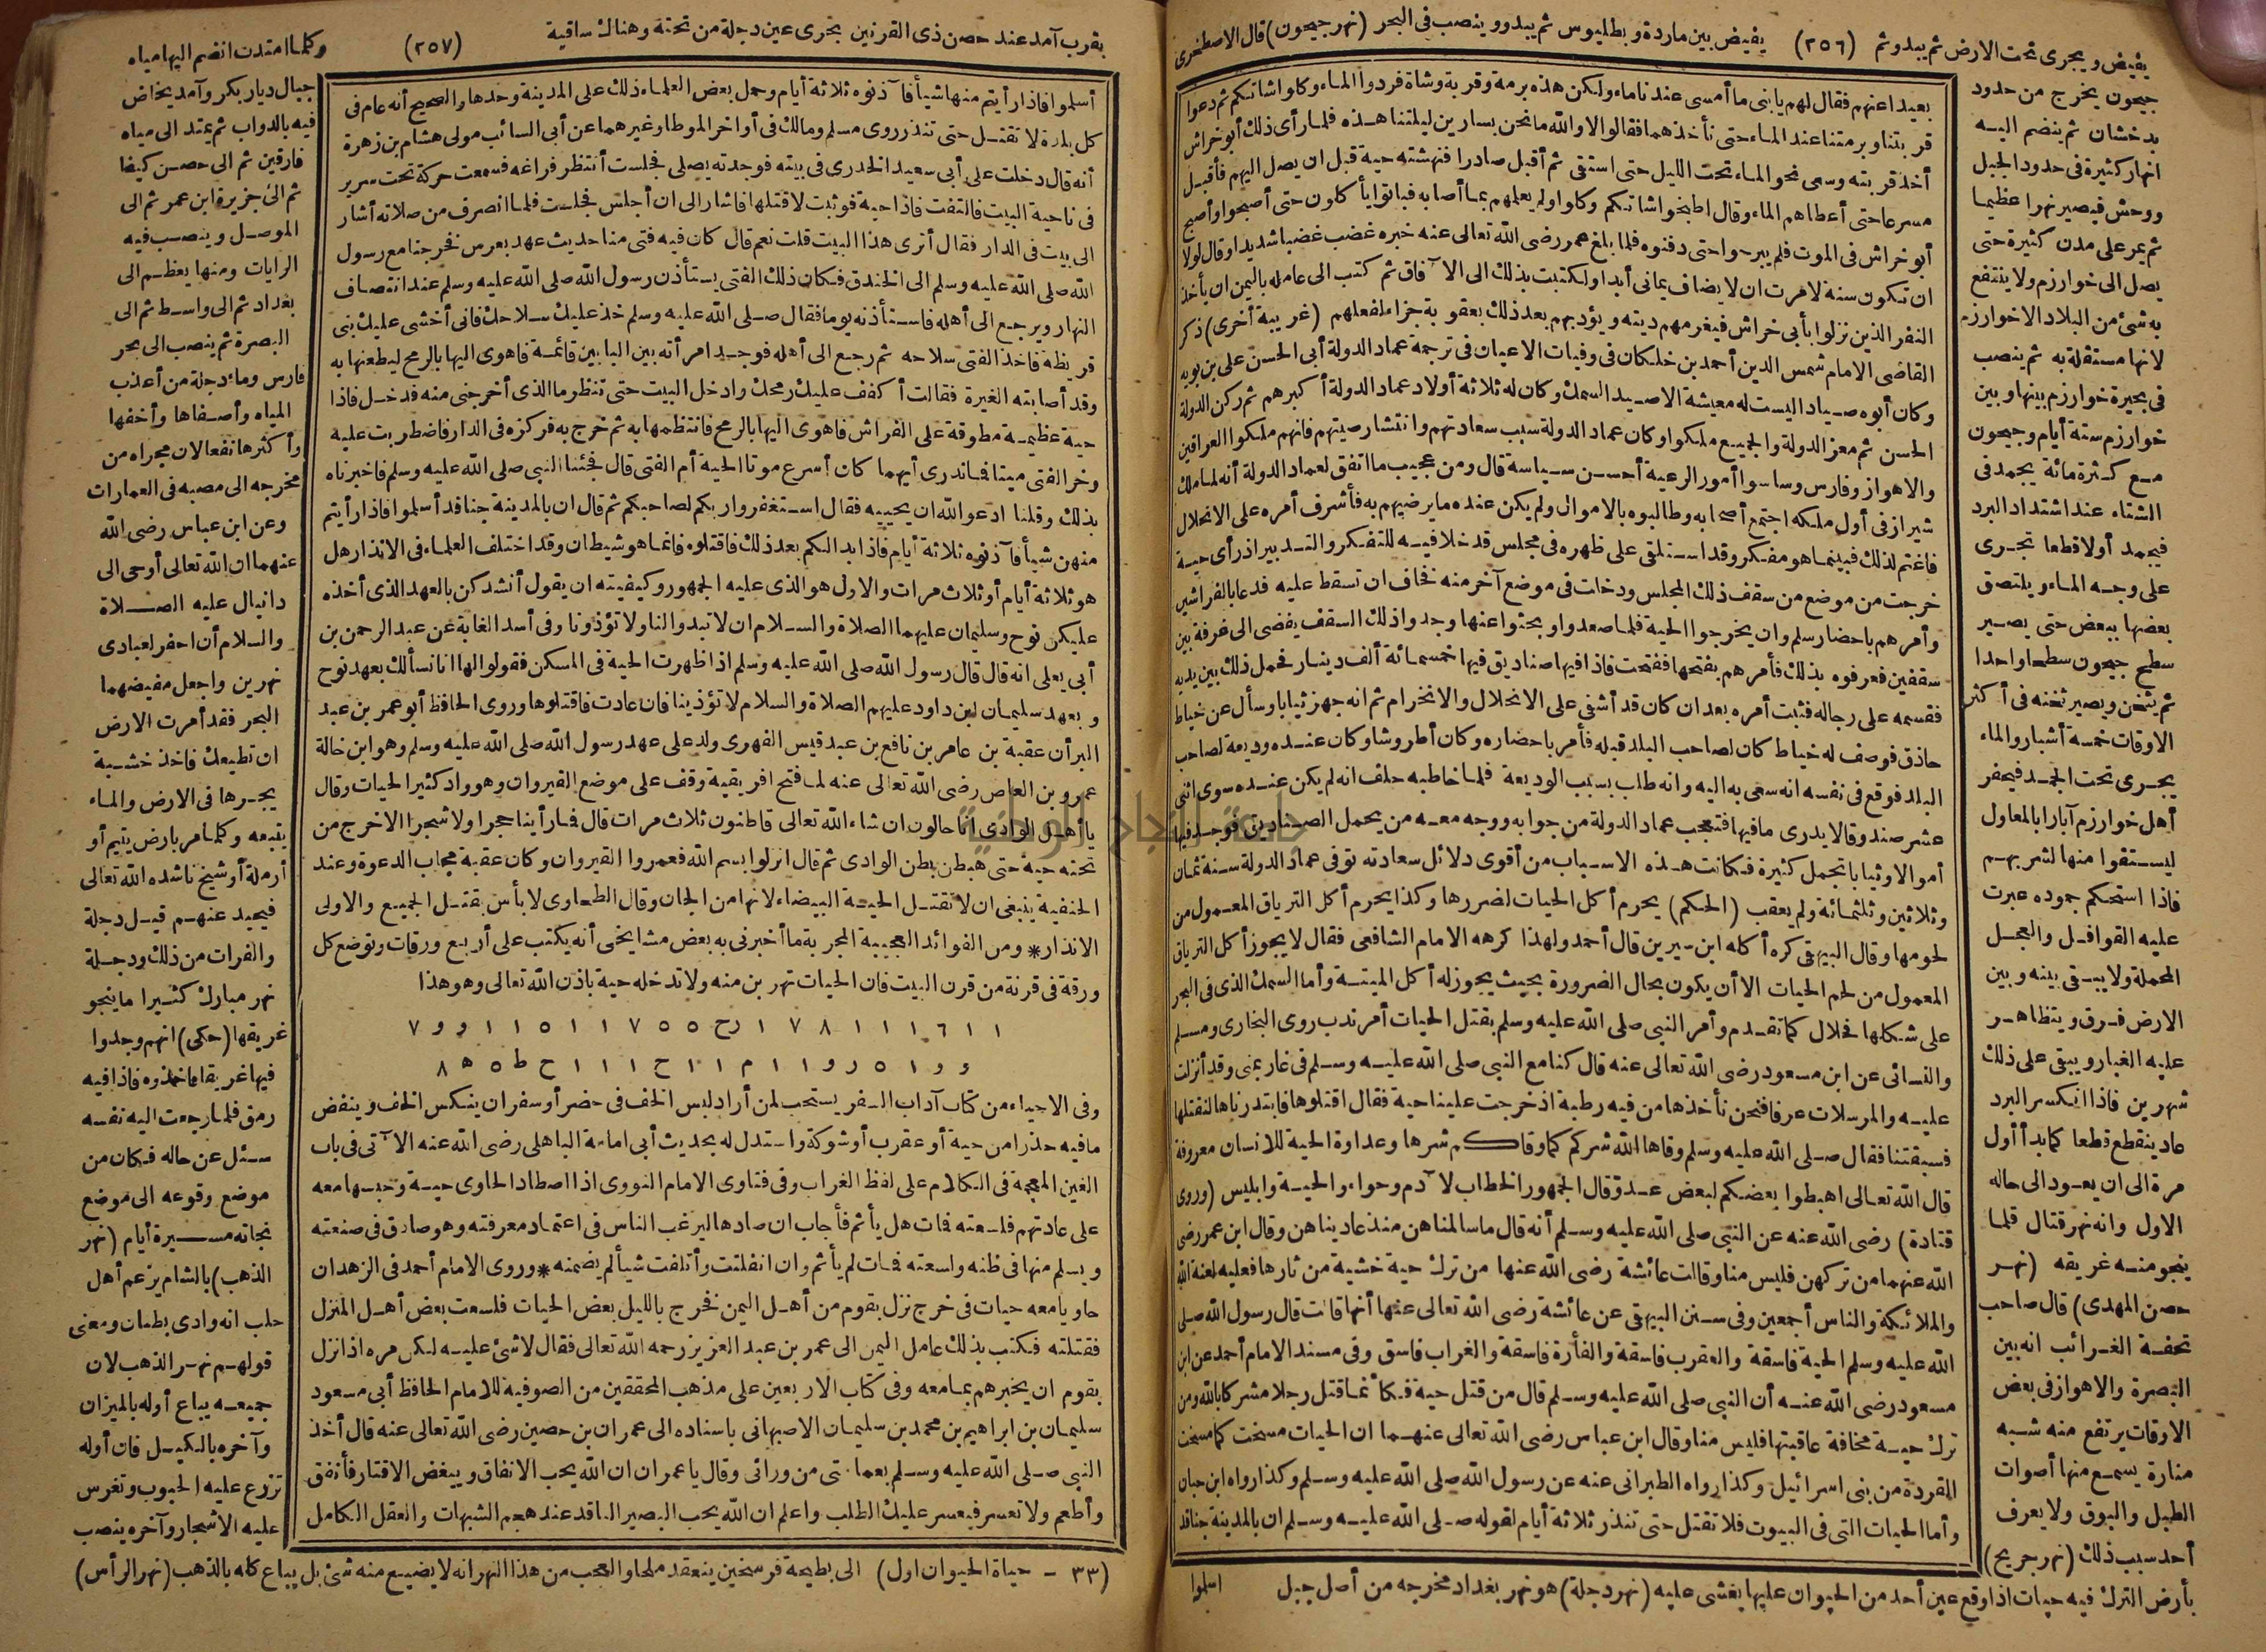 يفيض ويجرى تحت الارض ثم يبدو ثم (٢٥٦) يفيض بين ماردة وبطليوس ثم يبدو وينصب فى البحر (نهر جيحون) قال الاصطخرى
جيحون يخرج من حدود
بدخشان ثم ينضم اليه
انهار كثيرة فى حدود الجبل
ووخش فيصير نهرا عظيما
ثم يمر على مدن كثيرة حتى
يصل الى خوارزم ولا ينتفع
به شئ من البلاد الا خوارزم
لانها مستقلة به ثم ينصب
فى بحيرة خوارزم بينها وبين
خوارزم ستة أيام وجيحون
مع كثرة مائه يجمد فى
الشتاء عند اشتداد البرد
فيجمد أولا قطعا تجرى
على وجه الماء ويلتصق
بعضها ببعض حتى يصير
سطح جيحون سطحا واحدا
ثم يثخن ويصير ثخنه فى أكثر
الاوقات خمسة أشبار والماء
يجرى تحت الجمد فيحفر
أهل خوارزم آبارا بالمعاول
ليستقوا منها لشربهم
فاذا استحكم جموده عبرت
عليه القوافل والعجل
المحملة ولا يبقى بينه وبين
الارض فرق ويتظاهر
عليه الغبار ويبقى على ذلك
شهرين فاذا انكسر البرد
عاد ينقطع قطعا كما بدأ أول
مرة الى ان يعود الى حاله
الاول وانه نهر قتال قلما
ينجو منه غريقه (نهر
حصن المهدى) قال صاحب
تحفة الغرائب انه بين
البصرة والاهواز فى بعض
الاوقات يرتفع منه شبه
منارة يسمع منها أصوات
الطبل والبوق ولا يعرف
أحد سبب ذلك (نهر جريج)
بأرض الترك فيه حيات اذا وقع عين أحد من الحيوان عليها يغشى عليه (نهر دجلة) هو نهر بغداد مخرجه من أصل جبل
بعيدا عنهم فقال لهم يا بنى ما أمسى عندنا ماء ولكن هذه برمة وقربة وشاة فردوا الماء وكلوا شاتكم ثم دعوا
قربتنا وبرمتنا عند الماء حتى نأخذهما فقالوا لا والله ما نحن بسارين ليلتنا هذه فلما رأى ذلك أبو خراش
أخذ قربته وسعى نحو الماء تحت الليل حتى استقى ثم أقبل صادرا فنهشته حية قبل ان يصل اليهم فأقبل
مسرعا حتى أعطاهم الماء وقال اطبخوا شاتكم وكلوا ولم يعلمهم بما أصابه فباتوا يأكلون حتى أصبحوا وأصبح
أبو خراش فى الموت فلم يبرحوا حتى دفنوه فلما بلغ عمر رضى الله تعالى عنه خبره غضب غضبا شديدا وقال لولا
ان تكون سنة لامرت ان لا يضاف يمانى أبدا ولكتبت بذلك الى الآفاق ثم كتب الى عامله باليمن ان يأخذ
النفر الذين نزلوا بأبى خراش فيغرمهم ديته ويؤدبهم بعد ذلك بعقوبة جزاء لفعلهم (غريبة أخرى) ذكر
القاضى الامام شمس الدين أحمد بن خلكان فى وفيات الاعيان فى ترجمة عماد الدولة أبى الحسن على بن بويه
وكان أبوه صيادا ليست له معيشة الا صيد السمك وكان له ثلاثة أولاد عماد الدولة أكبرهم ثم ركن الدولة
الحسن ثم معز الدولة والجميع ملكوا وكان عماد الدولة سبب سعادتهم وانتشار صيتهم فانهم ملكوا العراقين
والاهواز وفارس وساسوا أمور الرعية أحسن سياسة قال ومن عجيب ما اتفق لعماد الدولة أنه لما ملك
شيراز فى أول ملكه اجتمع أصحابه وطالبوه بالاموال ولم يكن عنده ما يرضيهم به فأشرف أمره على الانحلال
فاغتم لذلك فبينما هو مفكر وقد استلقى على ظهره فى مجلس قد خلا فيه للتفكر والتدبير اذ رأى حية
خرجت من موضع من سقف ذلك المجلس ودخلت فى موضع آخر منه فخاف ان تسقط عليه فدعا بالفراشين
وأمرهم باحضار سلم وان يخرجوا الحية فلما صعدوا وبحثوا عنها وجدوا ذلك السقف يفضى الى غرفة بين
سقفين فعرفوه بذلك فأمرهم بفتحها ففتحت فاذا فيها صناديق فيها خمسمائة ألف دينار فحمل ذلك بين يديه
فقسمه على رجاله فثبت أمره بعد ان كان قد أشفى على الانحلال والانخرام ثم انه جهز ثيابا وسأل عن خياط
حاذق فوصف له خياط كان لصاحب البلد قبله فأمر باحضاره وكان أطروشا وكان عنده وديعة لصاحب
البلد فوقع فى نفسه انه سعى به اليه وانه طلب بسبب الوديعة فلما خاطبه حلف انه لم يكن عنده سوى اثنى
عشر صندوقا لا يدرى ما فيها فتعجب عماد الدولة من جوابه ووجه معه من يحمل الصناديق فوجد فيها
أموالا وثيابا بتجمل كثيرة فكانت هذه الاسباب من أقوى دلائل سعادته توفى عماد الدولة سنة ثمان
وثلاثين وثلثمائة ولم يعقب (الحكم) يحرم أكل الحيات لضررها وكذا يحرم أكل الترياق المعمول من
لحومها وقال البيهقى كره أكله ابن سيرين قال أحمد ولهذا كرهه الامام الشافعى فقال لا يجوز أكل الترياق
المعمول من لحم الحيات الا أن يكون بحال الضرورة بحيث يجوز له أكل الميتة وأما السمك الذى فى البحر
على شكلها فحلال كما تقدم وأمر النبى صلى الله عليه وسلم بقتل الحيات أمر ندب روى البخارى ومسلم
والنسائى عن ابن مسعود رضى الله تعالى عنه قال كنا مع النبى صلى الله عليه وسلم فى غار بمنى وقد أنزلت
عليه والمرسلات عرفا فنحن نأخذها من فيه رطبة اذ خرجت علينا حية فقال اقتلوها فابتدرناها لنقتلها
فسبقتنا فقال صلى الله عليه وسلم وقاها الله شركم كما وقاكم شرها وعداوة الحية للانسان معروفة
قال الله تعالى اهبطوا بعضكم لبعض عدو قال الجمهور الخطاب لآدم وحواء والحية وابليس (وروى
قتادة) رضى الله عنه عن النبى صلى الله عليه وسلم أنه قال ما سالمناهن منذ عاديناهن وقال ابن عمر رضى
الله عنهما من تركهن فليس منا وقالت عائشة رضى الله عنها من ترك حية خشية من ثارها فعليه لعنة الله
والملائكة والناس أجمعين وفى سنن البيهقى عن عائشة رضى الله تعالى عنها أنها قالت قال رسول الله صلى
الله عليه وسلم الحية فاسقة والعقرب فاسقة والفأرة فاسقة والغراب فاسق وفى مسند الامام أحمد عن ابن
مسعود رضى الله عنه أن النبى صلى الله عليه وسلم قال من قتل حية فكأنما قتل رجلا مشركا بالله ومن
ترك حية مخافة عاقبتها فليس منا وقال ابن عباس رضى الله تعالى عنهما ان الحيات مسخت كما مسخت
القردة من بنى اسرائيل وكذا رواه الطبرانى عنه عن رسول الله صلى الله عليه وسلم وكذا رواه ابن حبان
وأما الحيات التى فى البيوت فلا تقتل حتى تنذر ثلاثة أيام لقوله صلى الله عليه وسلم ان بالمدينة جنا قد
اسلموا
بقرب آمد عند حصن ذى القرنين يجرى عين دجلة من تحته وهناك ساقية (٢٥٧) وكلما امتدت انضم اليها مياه
أسلموا فاذا رأيتم منها شيأ فآذنوه ثلاثة أيام وحمل بعض العلماء ذلك على المدينة وحدها والصحيح أنه عام فى
كل بلدة لا تقتل حتى تنذر روى مسلم ومالك فى أواخر الموطا وغيرهما عن أبى السائب مولى هشام بن زهرة
أنه قال دخلت على أبى سعيد الخدرى فى بيته فوجدته يصلى فجلست أنتظر فراغه فسمعت حركة تحت سرير
فى ناحية البيت فالتفت فاذا حية فوثبت لاقتلها فاشار الى ان أجلس فجلست فلما انصرف من صلاته أشار
الى بيت فى الدار فقال أترى هذا البيت قلت نعم قال كان فيه فتى منا حديث عهد بعرس فخرجنا مع رسول
الله صلى الله عليه وسلم الى الخندق فكان ذلك الفتى يستأذن رسول الله صلى الله عليه وسلم عند انتصاف
النهار ويرجع الى أهله فاستأذنه يوما فقال صلى الله عليه وسلم خذ عليك سلاحك فانى أخشى عليك بنى
قريظة فاخذ الفتى سلاحه ثم رجع الى أهله فوجد امرأته بين البابين قائمة فاهوى اليها بالرمح ليطعنها به
وقد أصابته الغيرة فقالت أكفف عليك رمحك وادخل البيت حتى تنظر ما الذى أخرجنى منه فدخل فاذا
حية عظيمة مطوقة على الفراش فاهوى اليها بالرمح فانتظمها به ثم خرج به فركزه فى الدار فاضطربت عليه
وخر الفتى ميتا فما ندرى أيهما كان أسرع موتا الحية أم الفتى قال فجئنا النبى صلى الله عليه وسلم فاخبرناه
بذلك وقلنا ادعو الله ان يحييه فقال استغفروا ربكم لصاحبكم ثم قال ان بالمدينة جنا قد أسلموا فاذا رأيتم
منهن شيأ فآذنوه ثلاثة أيام فاذا بدا لكم بعد ذلك فاقتلوه فانما هو شيطان وقد اختلف العلماء فى الانذار هل
هو ثلاثة أيام أو ثلاث مرات والاول هو الذى عليه الجمهور وكيفيته ان يقول أنشدكن بالعهد الذى أخذه
عليكن نوح وسليمان عليهما الصلاة والسلام ان لا تبدوا لنا ولا تؤذونا وفى أسد الغابة عن عبد الرحمن بن
أبى يعلى انه قال قال رسول الله صلى الله عليه وسلم اذا ظهرت الحية فى المسكن فقولوا لها انا نسألك بعهد نوح
وبعهد سليمان بن داود عليهم الصلاة والسلام لا تؤذينا فان عادت فاقتلوها وروى الحافظ أبو عمر بن عبد
البر أن عقبة بن عامر بن نافع بن عبد قيس الفهرى ولد على عهد رسول الله صلى الله عليه وسلم وهو ابن خالة
عمرو بن العاص رضى الله تعالى عنه لما فتح افريقية وقف على موضع القيروان وهو واد كثير الحيات وقال
يا أهل الوادى انا حالون ان شاء الله تعالى قاطنون ثلاث مرات قال فما رأينا حجرا ولا شجرا الا خرج من
تحته حية حتى هبطن بطن الوادى ثم قال انزلوا بسم الله فعمروا القيروان وكان عقبة مجاب الدعوة وعند
الحنفية ينبغى ان لا تقتل الحية البيضاء لانها من الجان وقال الطحاوى لا بأس بقتل الجميع والاولى
الانذار * ومن الفوائد العجيبة المجربة ما أخبرنى به بعض مشايخى أنه يكتب على أربع ورقات وتوضع كل
ورقة فى قرنة من قرن البيت فان الحيات تهربن منه ولا تدخله حية باذن الله تعالى وهو هذا
١ ١ ٦ ١ ١ ١ ٨ ٧ ١ رح ٥ ٥ ٧ ١ ١ ٥ ١ ١ و و ٧
و و ١ ٥ ر و ١ ١ م ١ ١ ح ١ ١ ١ ح ط ٥ ه ٨
وفى الاحياء من كتاب آداب السفر يستحب لمن أراد لبس الخف فى حضر أو سفر ان ينكس الخف وينفض
ما فيه حذرا من حية أو عقرب أو شوكة واستدل له بحديث أبى امامة الباهلى رضى الله عنه الآتى فى باب
الغين المعجمة فى الكلام على لفظ الغراب وفى فتاوى الامام النووى اذا اصطاد الحاوى حية وحبسها معه
على عادتهم فلسعته فمات هل يأثم فأجاب ان صادها ليرغب الناس فى اعتماد معرفته وهو صادق فى صنعته
ويسلم منها فى ظنه ولسعته فمات لم يأثم وان انفلتت وأتلفت شيأ لم يضمنه * وروى الامام أحمد فى الزهد ان
حاويا معه حيات فى خرج نزل بقوم من أهل اليمن فخرج بالليل بعض الحيات فلسعت بعض أهل المنزل
فقتلته فكتب بذلك عامل اليمن الى عمر بن عبد العزيز رحمه الله تعالى فقال لا شئ عليه لكن مره اذا نزل
بقوم ان يخبرهم بما معه وفى كتاب الاربعين على مذهب المحققين من الصوفية للامام الحافظ أبى مسعود
سليمان بن ابراهيم بن محمد بن سليمان الاصبهانى باسناده الى عمران بن حصين رضى الله تعالى عنه قال أخذ
النبى صلى الله عليه وسلم بعمامتى من ورائى وقال يا عمران ان الله يحب الانفاق ويبغض الاقتار فأنفق
وأطعم ولا تعسر فيعسر عليك الطلب واعلم ان الله يحب البصير الناقد عند هجم الشبهات والعقل الكامل
جبال ديار بكر وآمد يخاض
فيه بالدواب ثم يمتد الى مياه
فارقين ثم الى حصن كيفا
ثم الى جزيرة ابن عمر ثم الى
الموصل وينصب فيه
الزابات ومنها يعظم الى
بغداد ثم الى واسط ثم الى
البصرة ثم ينصب الى بحر
فارس وماء دجلة من أعذب
المياه وأصفاها وأخفها
وأكثرها نفعا لان مجراه من
مخرجه الى مصبه فى العمارات
وعن ابن عباس رضى الله
عنهما ان الله تعالى أوحى الى
دانيال عليه الصلاة
والسلام أن احفر لعبادى
نهرين واجعل مفيضهما
البحر فقد أمرت الارض
ان تطيعك فاخذ خشبة
يجرها فى الارض والماء
يتبعه وكلما مر بارض يتيم أو
أرملة أو شيخ ناشده الله تعالى
فيحيد عنهم قيل دجلة
والفرات من ذلك ودجلة
نهر مبارك كثيرا ما ينجو
غريقها (حكى) انهم وجدوا
فيها غريقا فاخذوه فاذا فيه
رمق فلما رجعت اليه نفسه
سئل عن حاله فكان من
موضع وقوعه الى موضع
نجاته مسيرة أيام (نهر
الذهب) بالشام يزعم أهل
حلب انه وادى بطنان ومعنى
قولهم نهر الذهب لان
جميعه يباع أوله بالميزان
وآخره بالكيل فان أوله
تزرع عليه الحبوب وتغرس
عليه الاشجار وآخره ينصب
(٣٣ - حياة الحيوان اول) الى بطيحة فرسخين ينعقد ملحا والعجب من هذا النهر انه لا يضيع منه شئ بل يباع كله بالذهب (نهر الرأس)
جامعة النجاح الوطنية